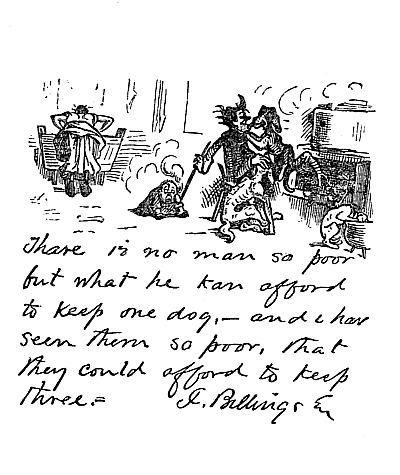 Thare is no man so poor
but what he kan afford
to keep one dog,— and i hav
seen them so poor, that
they could afford to keep
three.=    J. Billings